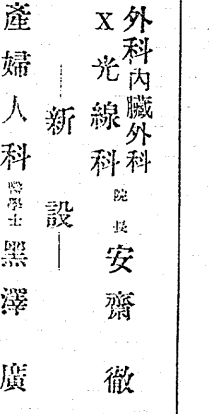 外科內臟外科
X光線科 院長 安齋徹
新設
產婦人科 醫學士 黑澤廣